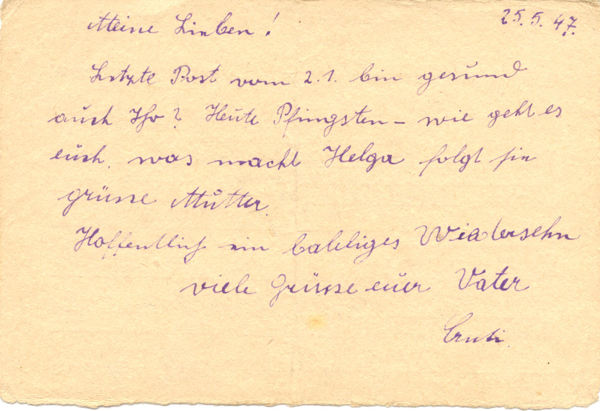 25.5.47.
Meine Lieben!
Letzte Post vom 2.1. bin gesund
auch Ihr? Heute Pfingsten – wie geht es
euch, was macht Helga folgt sie
grüsse Mutter.
Hoffentlich ein baldiges Wiedersehn
viele Grüsse euer Vater